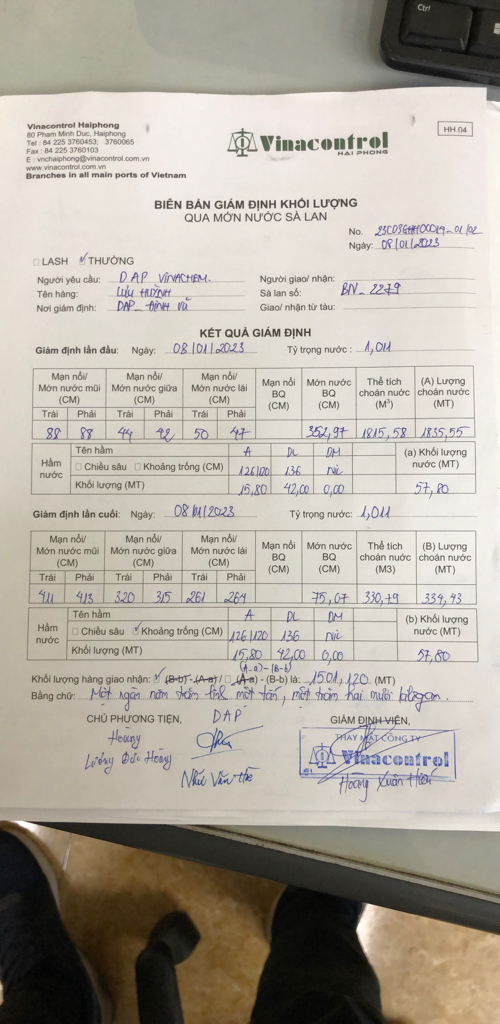 Ctrl
Vinacontrol Haiphong
80 Pham Minh Duc, Haiphong
Tel : 84 225 3760453; 3760065
Fax : 84 225 3760103
E : vnchaiphong@vinacontrol.com.vn
www.vinacontrol.com.vn
Branches in all main ports of Vietnam
Vinacontrol
HAI PHONG
HH.04
BIÊN BẢN GIÁM ĐỊNH KHỐI LƯỢNG
QUA MỚN NƯỚC SÀ LAN
No. 23C03GHH00019-01/02
Ngày: 08/01/2023
LASH THƯỜNG
Người yêu cầu: DAP VINACHEM. Người giao/ nhận:
Tên hàng: LƯU HUỲNH Sà lan số: BN-2279
Nơi giám định: DAP-ĐÌNH VŨ Giao/ nhận từ tàu:
KẾT QUẢ GIÁM ĐỊNH
Giám định lần đầu: Ngày: 08/01/2023 Tỷ trọng nước : 1,011
Mạn nổi/ Mớn nước mũi (CM) Mạn nổi/ Mớn nước giữa (CM) Mạn nổi/ Mớn nước lái (CM) Mạn nổi BQ (CM) Mớn nước BQ (CM) Thể tích choán nước (M³) (A) Lượng choán nước (MT)
Trái Phải Trái Phải Trái Phải
88 88 44 42 50 47 352,97 1815,58 1835,55
Hầm nước Tên hầm A DL DM (a) Khối lượng nước (MT)
Chiều sâu Khoảng trống (CM) 126/120 136 Nil
Khối lượng (MT) 15,80 42,00 0,00 57,80
Giám định lần cuối: Ngày: 08/01/2023 Tỷ trọng nước: 1,011
Mạn nổi/ Mớn nước mũi (CM) Mạn nổi/ Mớn nước giữa (CM) Mạn nổi/ Mớn nước lái (CM) Mạn nổi BQ (CM) Mớn nước BQ (CM) Thể tích choán nước (M3) (B) Lượng choán nước (MT)
Trái Phải Trái Phải Trái Phải
411 413 320 315 261 264 75,07 330,79 334,43
Hầm nước Tên hầm A DL DM (b) Khối lượng nước (MT)
Chiều sâu Khoảng trống (CM) 126/120 136 Nil
Khối lượng (MT) 15,80 42,00 0,00 57,80
(A-a)-(B-b)
Khối lượng hàng giao nhận: (B-b)- (A-a) / (A-a) - (B-b) là: 1501,120 (MT)
Bằng chữ: Một ngàn năm trăm linh một tấn, một trăm hai mươi kilogam.
CHỦ PHƯƠNG TIỆN, DAP GIÁM ĐỊNH VIÊN,
Hoàng
Lương Đức Hoàng
Như Văn
THAY MẶT CÔNG TY
Vinacontrol
Hoàng Xuân Hiếu